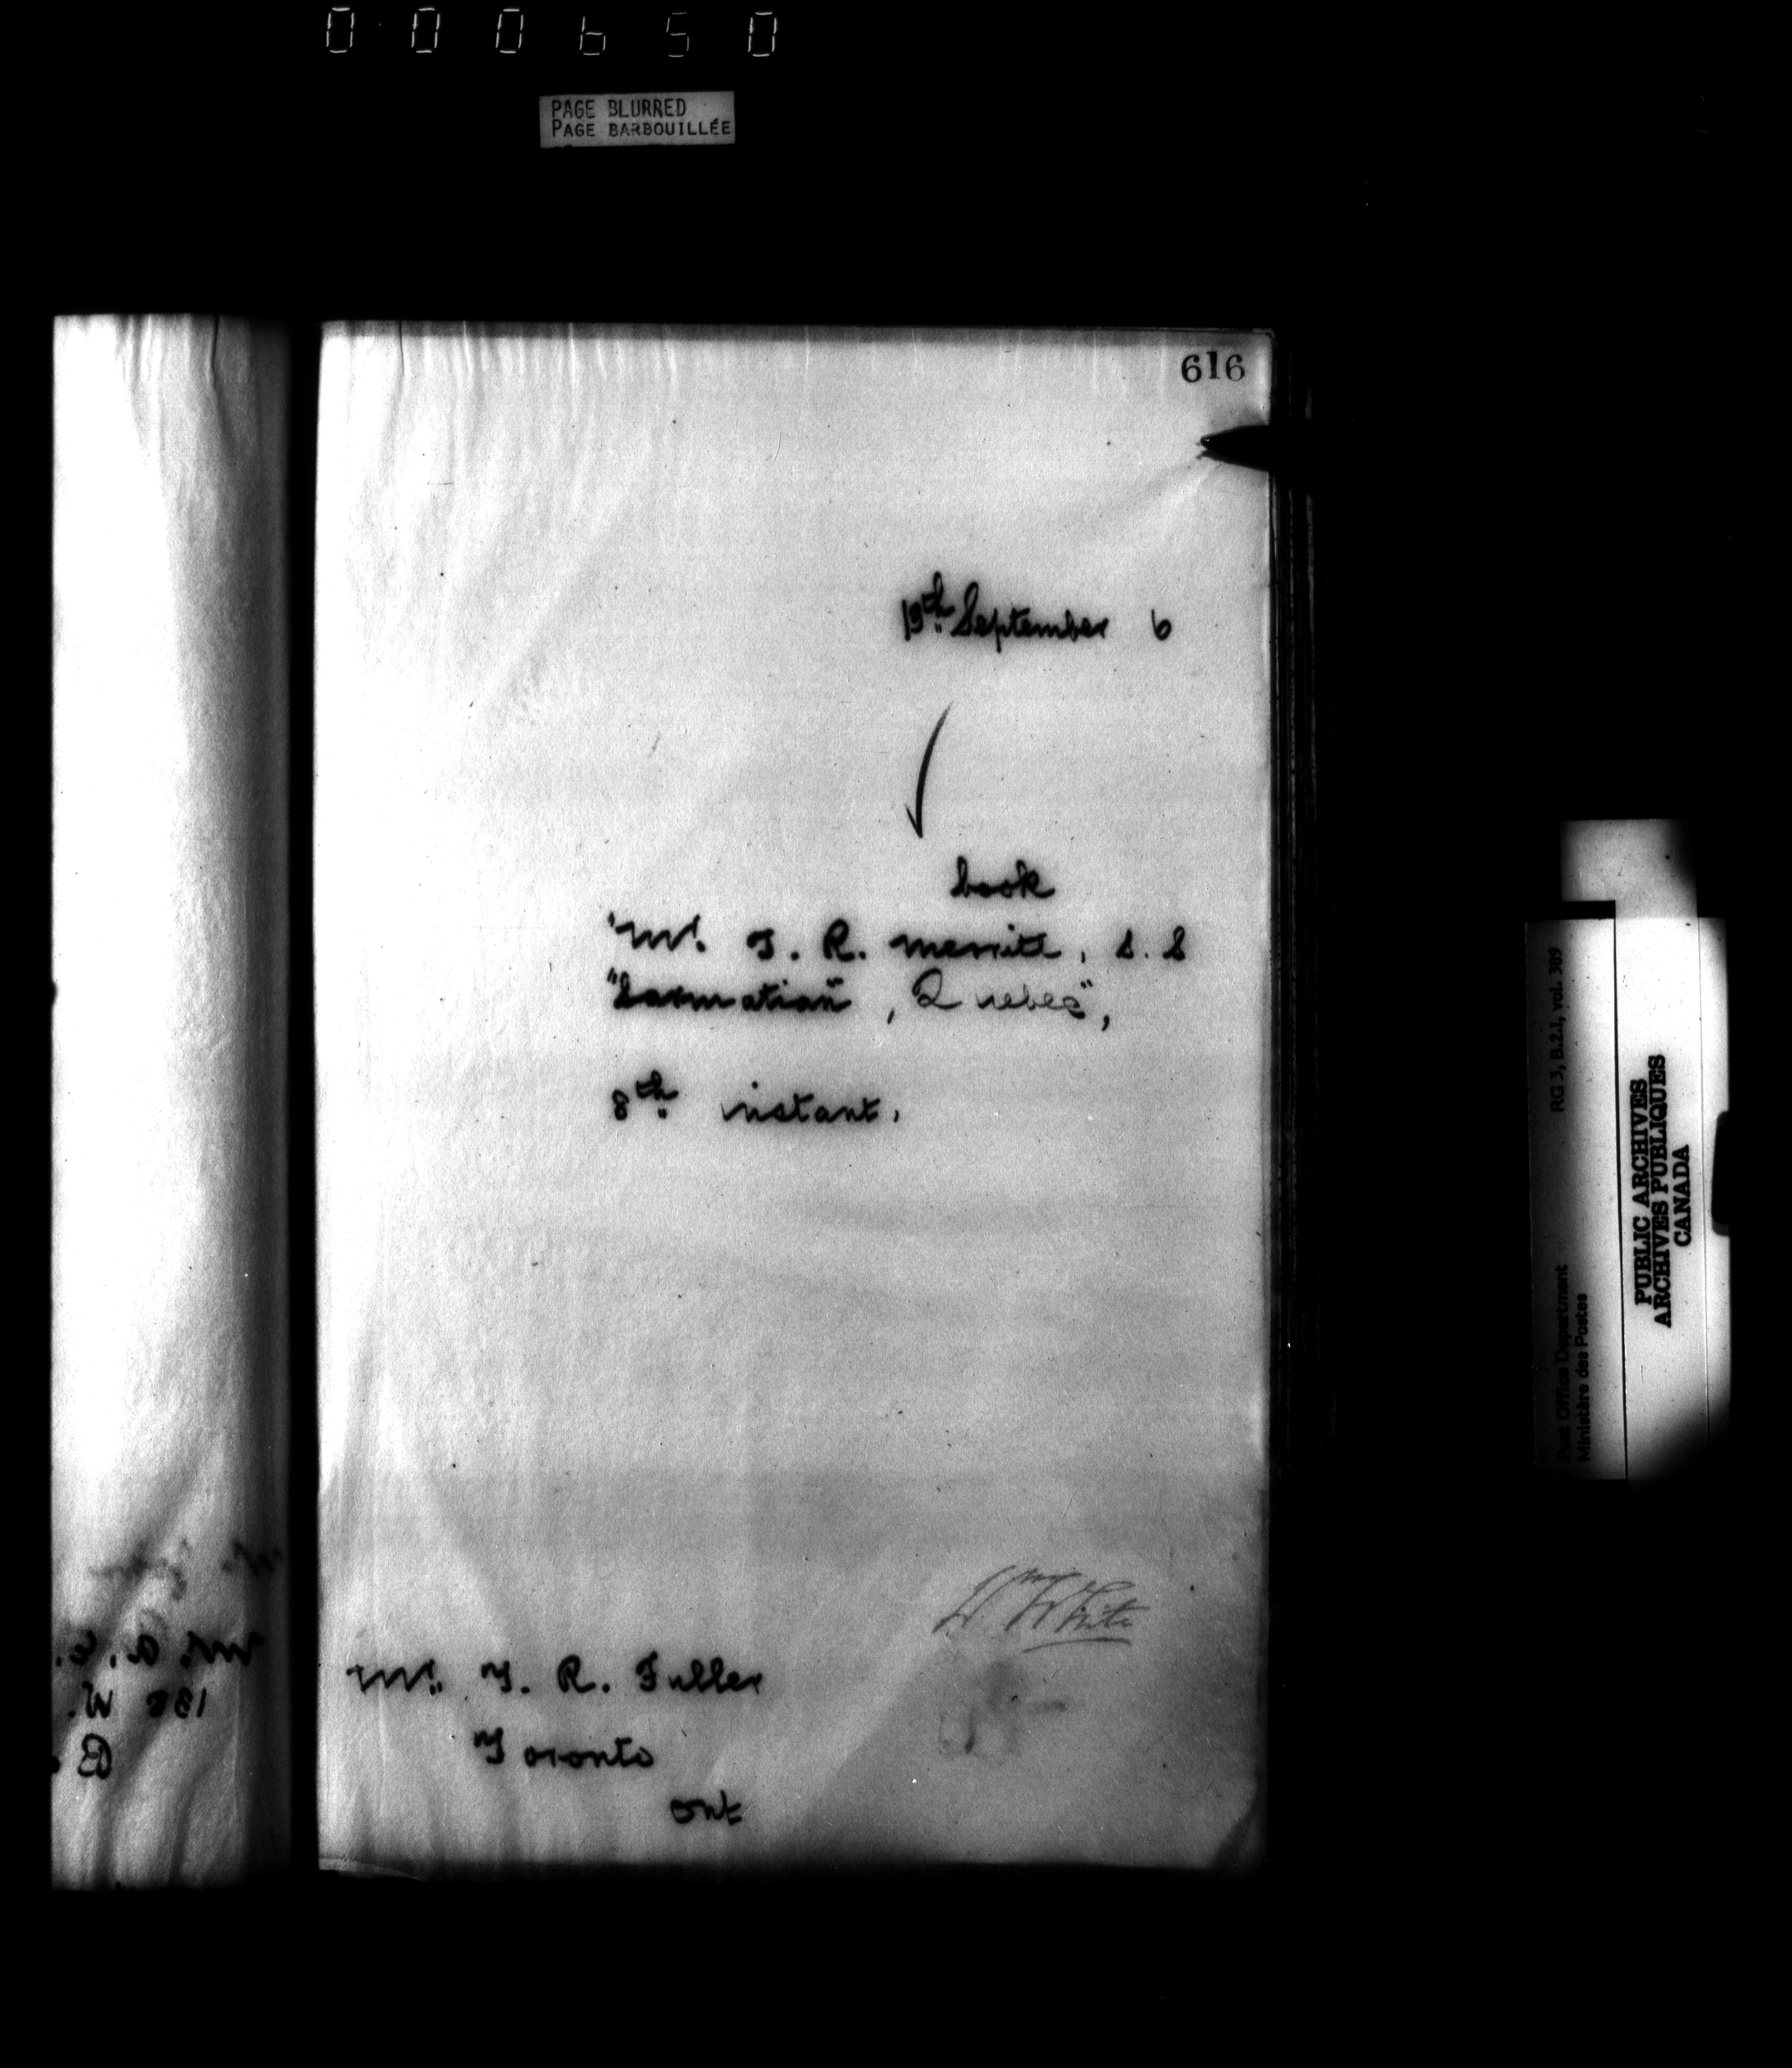 000650
PAGE BLURRED
PAGE BARBOUILLÉE
616
19th September 6
book
"Mr. T. R. Merritt, S. S
"Sarmatian", Quebec",
8th instant.
Wm White
Mr. T. R. Fuller
Toronto
Ont
Mr. A. E.
138 W.
B
RG 3, B.2.1, vol. 389
Post Office Department
Ministère des Postes
PUBLIC ARCHIVES
ARCHIVES PUBLIQUES
CANADA